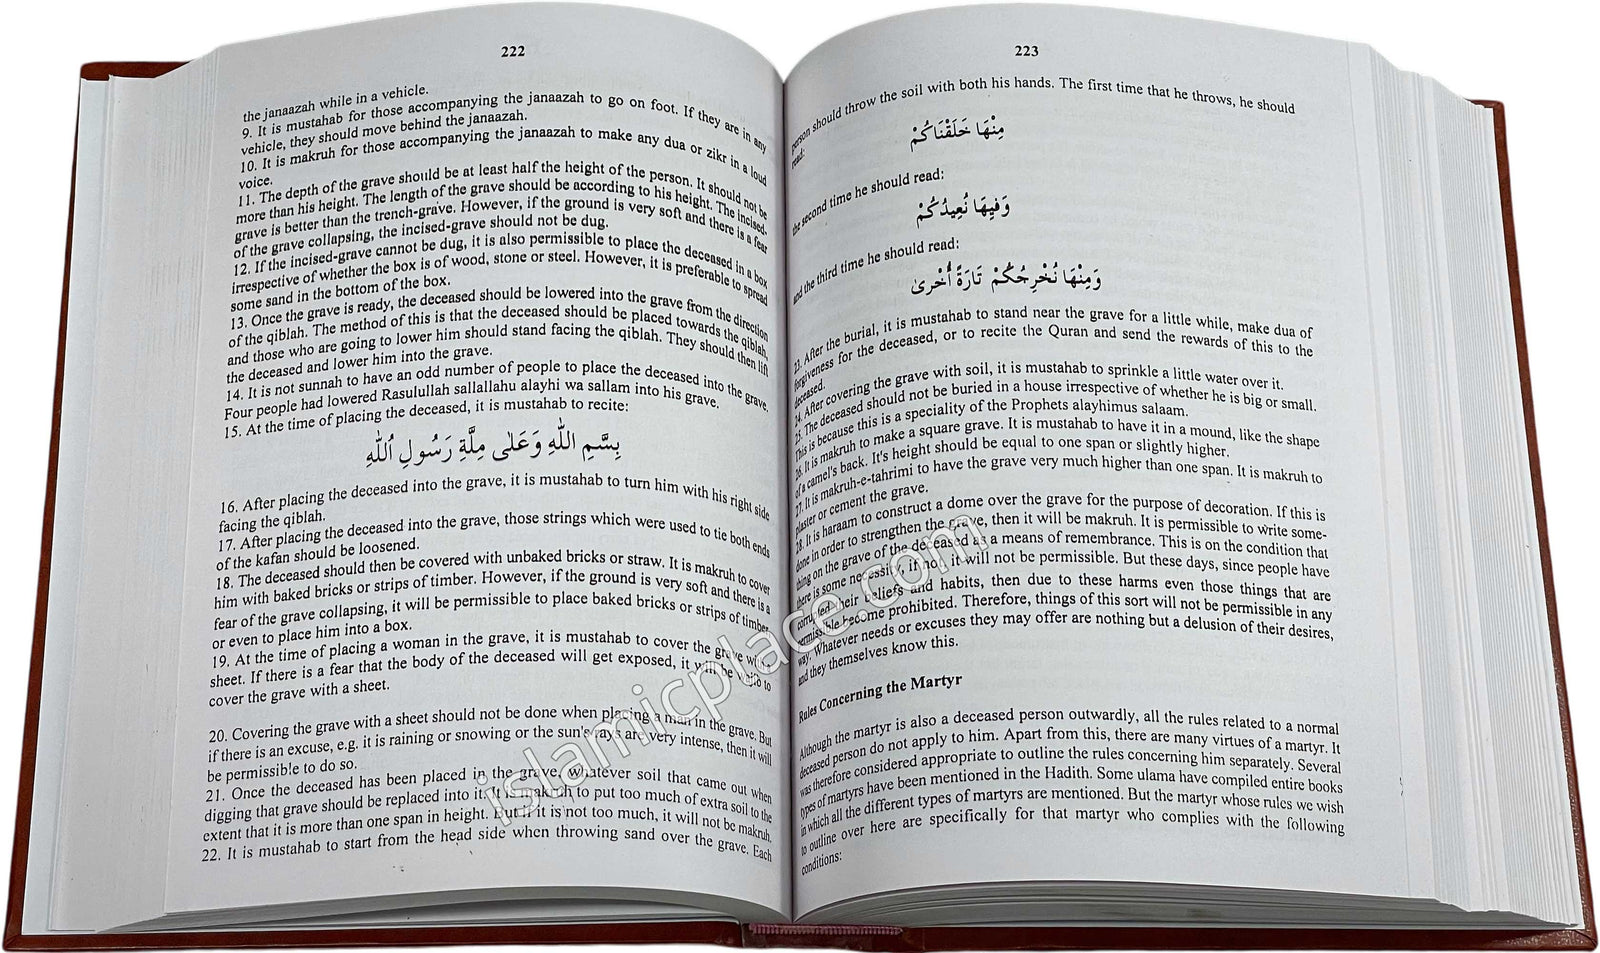 222
the janaazah while in a vehicle.
9. It is mustahab for those accompanying the janaazah to go on foot. If they are in any
vehicle, they should move behind the janaazah.
10. It is makruh for those accompanying the janaazah to make any dua or zikr in a loud
voice.
11. The depth of the grave should be at least half the height of the person. It should not be
more than his height. The length of the grave should be according to his height. The incised-
grave is better than the trench-grave. However, if the ground is very soft and there is a fear
of the grave collapsing, the incised-grave should not be dug.
12. If the incised-grave cannot be dug, it is also permissible to place the deceased in a box
irrespective of whether the box is of wood, stone or steel. However, it is preferable to spread
some sand in the bottom of the box.
13. Once the grave is ready, the deceased should be lowered into the grave from the direction
of the qiblah. The method of this is that the deceased should be placed towards the qiblah,
and those who are going to lower him should stand facing the qiblah. They should then lift
the deceased and lower him into the grave.
14. It is not sunnah to have an odd number of people to place the deceased into the grave.
Four people had lowered Rasulullah sallallahu alayhi wa sallam into his grave.
15. At the time of placing the deceased, it is mustahab to recite:
بِسْمِ اللّٰهِ وَعَلٰى مِلَّةِ رَسُولِ اللّٰهِ
16. After placing the deceased into the grave, it is mustahab to turn him with his right side
facing the qiblah.
17. After placing the deceased into the grave, those strings which were used to tie both ends
of the kafan should be loosened.
18. The deceased should then be covered with unbaked bricks or straw. It is makruh to cover
him with baked bricks or strips of timber. However, if the ground is very soft and there is a
fear of the grave collapsing, it will be permissible to place baked bricks or strips of timber
or even to place him into a box.
19. At the time of placing a woman in the grave, it is mustahab to cover the grave with a
sheet. If there is a fear that the body of the deceased will get exposed, it will be wajib to
cover the grave with a sheet.
20. Covering the grave with a sheet should not be done when placing a man in the grave. But
if there is an excuse, e.g. it is raining or snowing or the sun's rays are very intense, then it will
be permissible to do so.
21. Once the deceased has been placed in the grave, whatever soil that came out when
digging that grave should be replaced into it. It is makruh to put too much of extra soil to the
extent that it is more than one span in height. But if it is not too much, it will not be makruh.
22. It is mustahab to start from the head side when throwing sand over the grave. Each
223
person should throw the soil with both his hands. The first time that he throws, he should
read:
مِنْهَا خَلَقْنَاكُمْ
the second time he should read:
وَفِيهَا نُعِيدُكُمْ
and the third time he should read:
وَمِنْهَا نُخْرِجُكُمْ تَارَةً أُخْرىٰ
23. After the burial, it is mustahab to stand near the grave for a little while, make dua of
forgiveness for the deceased, or to recite the Quran and send the rewards of this to the
deceased.
24. After covering the grave with soil, it is mustahab to sprinkle a little water over it.
25. The deceased should not be buried in a house irrespective of whether he is big or small.
This is because this is a speciality of the Prophets alayhimus salaam.
26. It is makruh to make a square grave. It is mustahab to have it in a mound, like the shape
of a camel's back. It's height should be equal to one span or slightly higher.
27. It is makruh-e-tahrimi to have the grave very much higher than one span. It is makruh to
plaster or cement the grave.
28. It is haraam to construct a dome over the grave for the purpose of decoration. If this is
done in order to strengthen the grave, then it will be makruh. It is permissible to write some-
thing on the grave of the deceased as a means of remembrance. This is on the condition that
there is some necessity, if not, it will not be permissible. But these days, since people have
corrupted their beliefs and habits, then due to these harms even those things that are
permissible become prohibited. Therefore, things of this sort will not be permissible in any
way. Whatever needs or excuses they may offer are nothing but a delusion of their desires,
and they themselves know this.
Rules Concerning the Martyr
Although the martyr is also a deceased person outwardly, all the rules related to a normal
deceased person do not apply to him. Apart from this, there are many virtues of a martyr. It
was therefore considered appropriate to outline the rules concerning him separately. Several
types of martyrs have been mentioned in the Hadith. Some ulama have compiled entire books
in which all the different types of martyrs are mentioned. But the martyr whose rules we wish
to outline over here are specifically for that martyr who complies with the following
conditions:
islamicplace.com